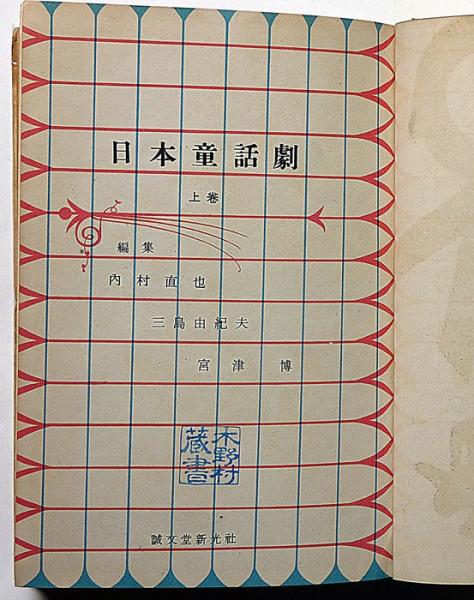 日本童話劇
上巻
編集
內村直也
三島由紀夫
宮津博
木野村
蔵書
誠文堂新光社